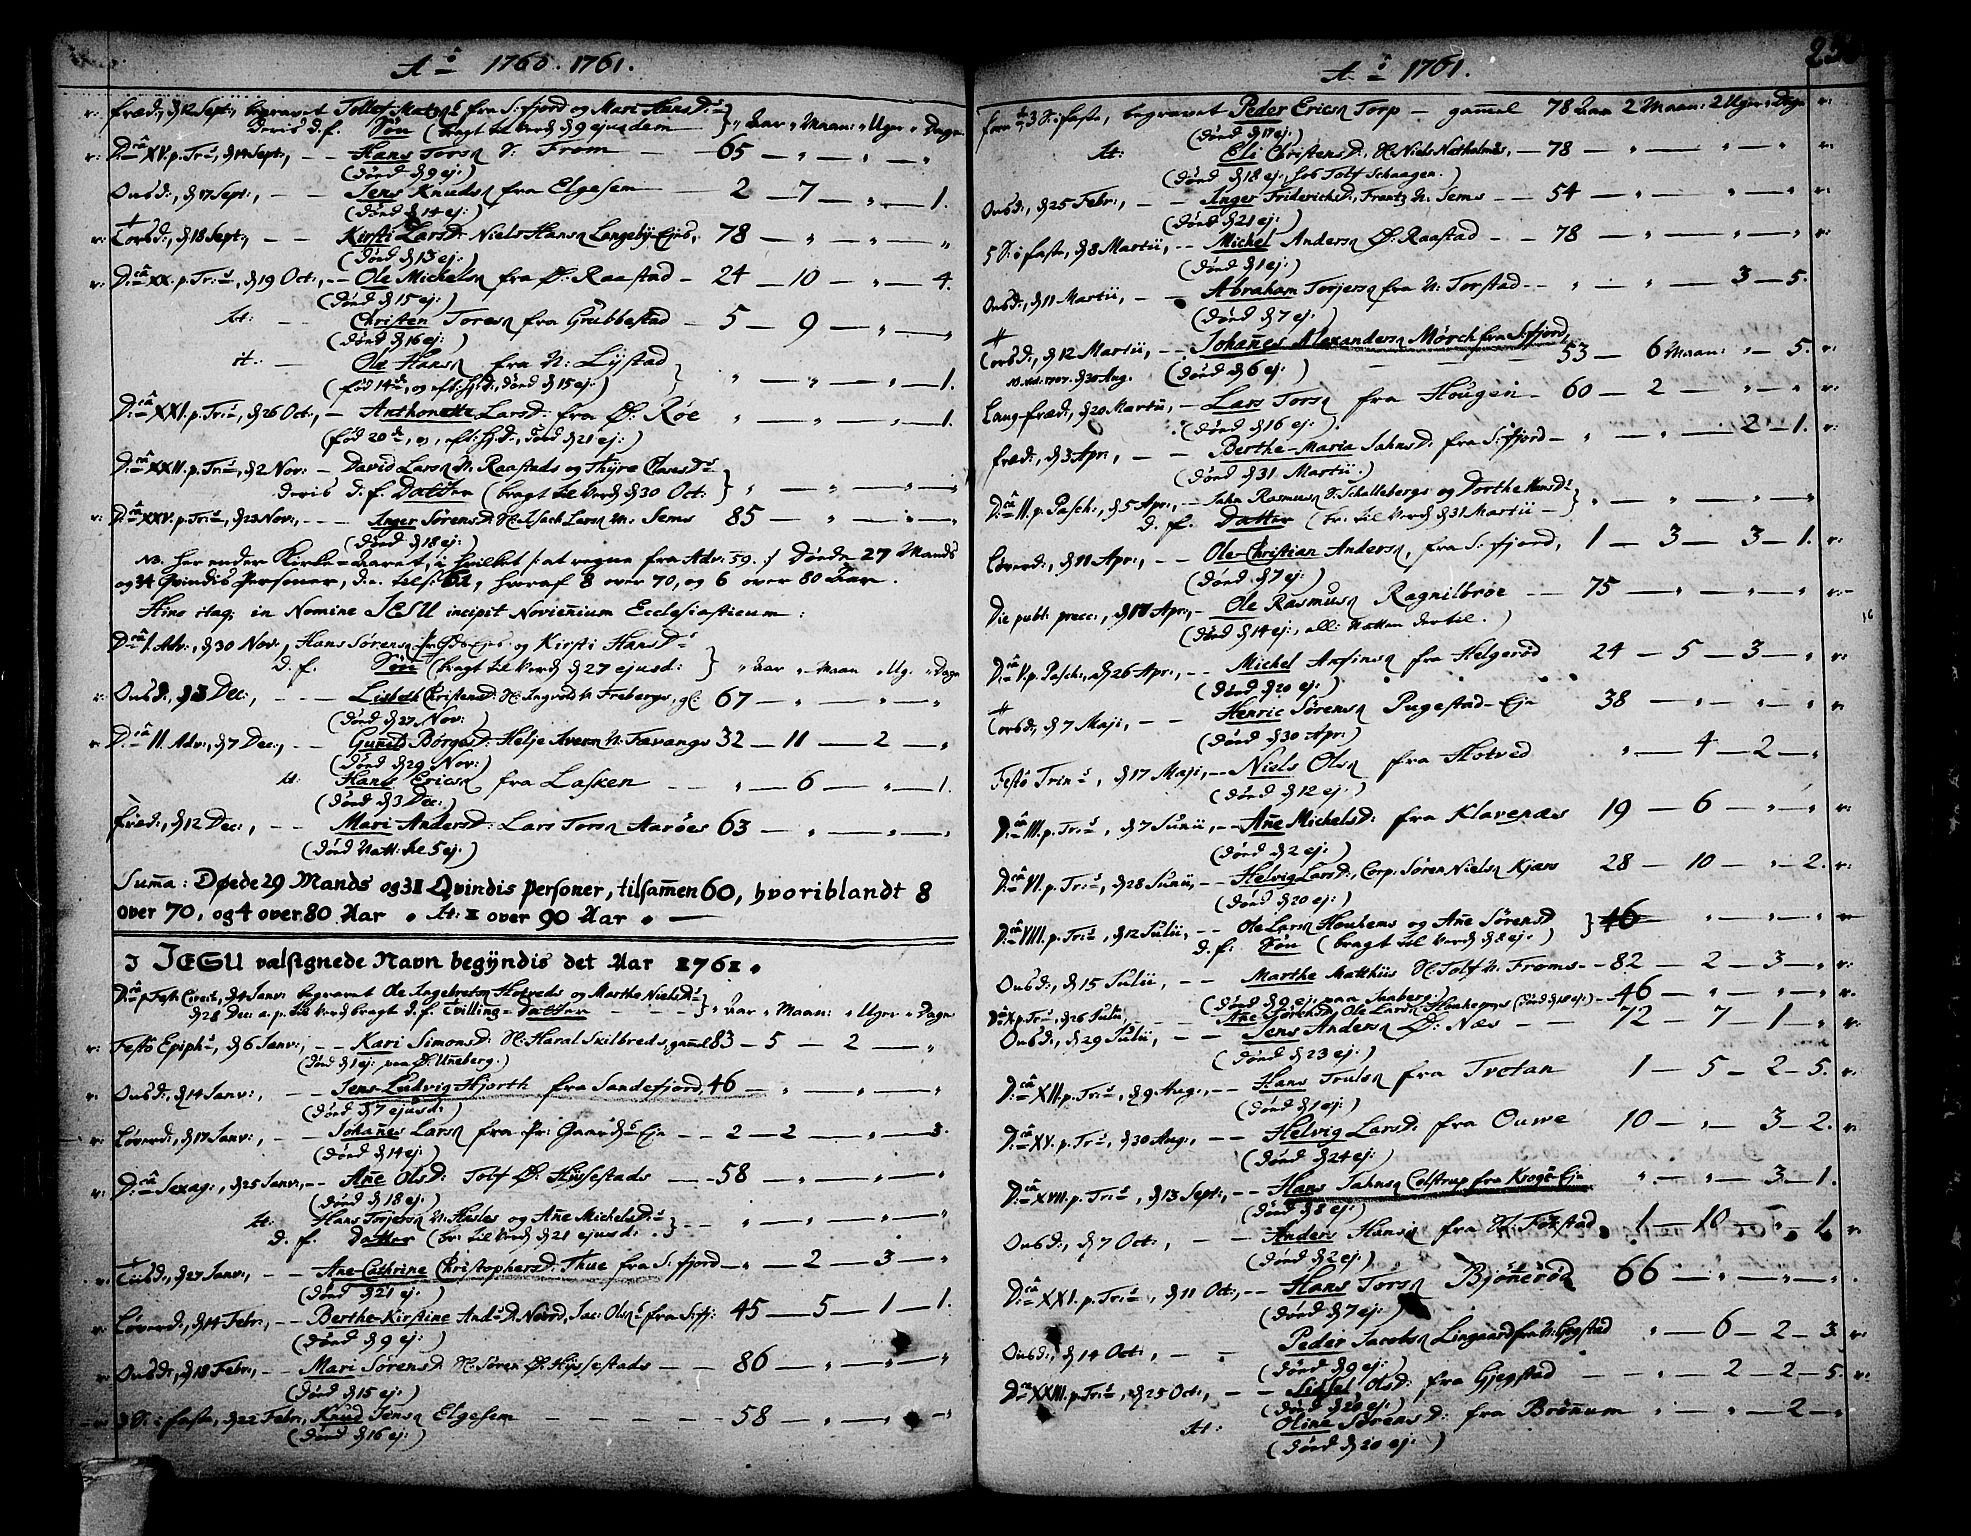 Aō 1760. 1761.
fræd:, d 12 Sept:, begravet Tollef Matz: fra S: fjord og Mari HansD:
deris d. f. Søn (bragt til Verd: d 9 ejusdem } „ Aar „ Maan: „ Uger „ Dage
v: D:câ XV. p. Tri:, d 14 Sept:, — Hans Torsn N: From — 65 — „ — „ — „
(død d 9 ej:)
Onsd:, d 17 Sept:, — Jens Knudsn fra Elgesem — 2 — 7 — „ — 1.
(død d 14 ej:)
v: Torsd:, d 18 Sept:, — Kirsti LarsD: Niels Hansn Langeby-Ejes, 78 — „ — „ — „
(død d 13 ej:)
v: D:câ XX. p. Tri:, d 19 Oct:, — Ole Michelsn fra Ø: Raastad — 24 — 10 — „ — 4.
(død d 15 ej:)
It: — Christen Toresn fra Grubbestad — 5 — 9 — „ — „
(død d 16 ej:)
it: — Ole Hansn fra N: Lystad
(fød 14de, og eft: Hjd:, død d 15 ej:) } „ — „ — „ — 1.
D:câ XXI. p. Tri:, d 26 Oct:, — Anthonette LarsD: fra Ø: Røe „ — „ — „ — 1.
(fød 20de, og eft: Hjd:, død d 21 ej:)
D:câ XXII. p. Tri:, d 2 Nov: — David Larsn N: Raastads og Thyre ClausD:
deris d. f. Datter (bragt til Verd: d 30 Oct: } „ — „ — „ — „
v: D:câ XXV. p. Tri:, d 23 Nov:, — Inger SørensD: H: Isach Larsn N: Sems 85 — „ — „ — „
(død d 18 ej:)
NB. her ender Kirke-Aaret, i hvilket /: at regne fra Adv: 59. :/ Døde 27 Mands
og 34 Qvindis Personer, d.e. tils: 61, hvoraf 8 over 70, og 6 over 80 Aar.
Hinc itaq; in Nomine JESU incipit Noviennium Ecclesiasticum:
D:câ I. Adv:, d 30 Nov:, Hans Sørensn Pr: Gds Ejes og Kirsti HansD:
d. f. Søn (bragt til Verd: d 27 ejusd: } „ Aar „ Maan „ Ug. „ Dage
v: Onsd:, d 3 Dec:, — Lisbeth ChristensD: H: Ingvold N: Frebergs, gl: 67 — „ — „ — „
(død d 27 Nov:)
v: D:câ II. Adv:, d 7 Dec:, — Gunild BørgesD: Helje Iversn N: Fævangs 32 — 11 — 2 — „
(død d 29 Nov:)
It: Hans Ericsn fra Lasken — „ — 6 — „ — 1.
(død d 3 Dec:)
fræd:, d 12 Dec:, — Mari AndersD: Lars Torsn Aarøes 63 — „ — „ — „
(død Natt: til 5 ej:)
Summa: Døde 29 Mands og 31 Qvindis Personer, tilsammen 60, hvoriblandt 8
over 70, og 4 over 80 Aar. It: 1 over 90 Aar.
J JESU valsignede Navn begyndis det Aar 1761.
D:câ p. Fest: Circ:, d 4 Janv: begravet Ole Ingebretsn Hotveds og Marthe NielsD:
d 28 Dec: a. p. til Verd: bragt d. f. Tvilling-Datter } „ Aar „ Maan: „ Uger „ Dage
v: Festo Epiph:, d 6 Janv:, — Kari SimonsD: H: Haral Skilbreds, gammel 83 — 5 — 2 — „
(død d 1 ej: paa Ø: Unneberg.)
v: Onsd:, d 14 Janv:, — Jens Ludvig Hjorth fra Sandefjord, 46 — „ — „ — „
(død d 7 ejusd:)
v: Løverd:, d 17 Janv:, — Johannes Larsn fra Pr: Gaards Eje — 2 — 2 — „ — 3.
(død d 14 ej:)
v: D:câ Sexag:, d 25 Janv:, — Ane OlsD: Tolf Ø: Hüssestads — 58 — „ — „ — „
(død d 18 ej:)
It: Hans Torjersn N: Hasles og Anne MichelsD:
d. f. Datter (br: til Verd: d 21 ejusd:.} — „ — „ — „ — „
v: Tüsd:, d 27 Janv:, — Ane-Cathrine ChristophersD: Thue fra S: fjord — „ — 2 — 3 — „
(død d 21 ej.)
v: Løverd:, d 14 Febr:, — Berthe-Kirstine And: D: Nord, Jac: Ols: fra S: fj: 45 — 5 — 1 — 1.
(død d 9 ej:)
v: Onsd:, d 18 Febr:, — Mari SørensD: H: Søren Ø: Hüssestads — 86 — „ — „ — „
(død d 15 ej:)
v: 3 S: i faste, d 22 Febr:, Knud Jensn Elgesem — 58 — „ — „ — „
(død d 16 ej:)
Aō 1761.
3 S: i faste, begravet Peder Ericsn Torp — gammel 78 Aar 2 Maan: 2 Uger „ Dage v:
(død d 17 ej:)
It: Eli ChristensD:, H: Niels Natholmens, — 78 — „ — „ — „ v:
(død d 18 ej:, hos Tolf Schaagen.)
Onsd:, d 25 Febr:, — Inger FriderichsD:, Frantz N: Sems — 54 — „ — „ — „ v:
(død d 21 ej:)
5 S: i faste, d 8 Martii, — Michel Andersn Ø: Raastad — 78 — „ — „ — „ v:
(død d 1 ej:)
Onsd:, d 11 Martii, — Abraham Torjersn fra N: Torstad — „ — „ — 3 — 5.
(død d 7 ej:)
Torsd:, d 12 Martii, — Johannes Alexandersn Mørch fra S: fjord,
53 — 6 Maan: „ — 5. v:
N. ad. 1707. d 30 Aug. (død d 6 ej:)
Lang-fræd:, d 20 Martii, — Lars Torsn fra Hougen — 60 — 2 — „ — „ v:
(død d 16 ej:)
fræd:, d 3 Apr:, — Berthe-Maria JahnsD: fra S: fjord — „ — „ — 2 — 1. v:
(død d 31 Martii.)
D:câ II. p. Pasch:, d 5 Apr:, — Jahn Rasmusn N: Schallebergs og Dorthe HansD:
d. f. Datter (br: til Verd: d 31 Martii — } „ — „ — „ — „
Løverd:, d 11 Apr:, — Ole-Christian Andersn, fra S: fjord, 1 — 3 — 3 — 1. v:
(død d 7 ej:)
Die publ: prec:, d 17 Apr:, — Ole Rasmusn Ragnilbroe — 75 — „ — „ — „ v:
(død d 14 ej:, all: Natten dertil.)
D:câ V. p. Pasch:, d 26 Apr:, — Michel Arfinsn fra Helgerød 24 — 5 — 3 — „ v:
(død d 20 ej:)
Torsd:, d 7 Maji, — Henric Sørensn Pugestad-Eje 38 — „ — „ — „ v:
(død d 30 Apr:)
Festo Trin:, d 17 Maji, — Niels Olsn fra Hotved „ — 4 — 2 — „
(død d 12 ej:)
D:câ III. p. Tri:, d 7 Junii, — Ane MichelsD: fra Klavenæs 19 — 6 — „ — „ v:
(død d 2 ej:)
D:câ VI. p. Tri:, d 28 Junii, — Helvig LarsD:, Corp: Søren Nielsn Kjærs 28 — 10 — „ — 2. v:
(død d 20 ej:)
D:câ VIII. p. Tri:, d 12 Julii, — Ole Larsn Houkems og Ane SørensD } 46 „ — „ — „
d. f. Søn (bragt til Verd: d 8 ej:)
Onsd:, d 15 Julii, — Marthe Matthiis H: Tolf N: Froms — 82 — 2 — 3 — „ v:
(død d 9 ej: paa Aaberg:)
D:câ X. p. Tri:, d 26 Julii, — Ane SørensD: Ole Larsn Houkems (død d 18 ej:) — 46 — „ — „ — „ v.
Onsd:, d 29 Julii, — Jens Andersn Ø: Næs — 72 — 7 — 1 — „ v:
(død d 23 ej:)
D:câ XII. p. Tri:, d 9 Aug:, — Hans Trulsn fra Tvetan 1 — 5 — 2 — 5. v:
(død d 1 ej:)
D:câ XV. p. Tri:, d 30 Aug:, — Helvig LarsD: fra Ouwe 10 — „ — 3 — 2. v:
(død d 24 ej:)
D:câ XVII. p. Tri:, d 13 Sept:, — Hans Jahnsn Colstrup fra Krogs-Eje „ — „ — 3 — 1.
(død d 8 ej:)
Onsd:, d 7 Oct:, — Anders Hansn fra N: Fokstad 1 — 10 — „ — 1. v:
(død d 2 ej:)
D:câ XXI. p. Tri:, d 11 Oct:, — Hans Torsn Bjønnerød 66 — „ — „ — „
(død d 7 ej:)
Onsd:, d 14 Oct:, — Peder Jacobsn Lingaard fra N: Gogstad „ — 6 — 2 — 3. v:
(død d 9 ej:)
D:câ XXIII. p. Tri:, d 25 Oct:, — Sissel OlsD: fra Gjegstad — 2 — 2 — 5. v:
(død d 20 ej:)
It: Oline SørensD: fra Brønnum „ — „ — 2 — „
(død d 20 ej:)